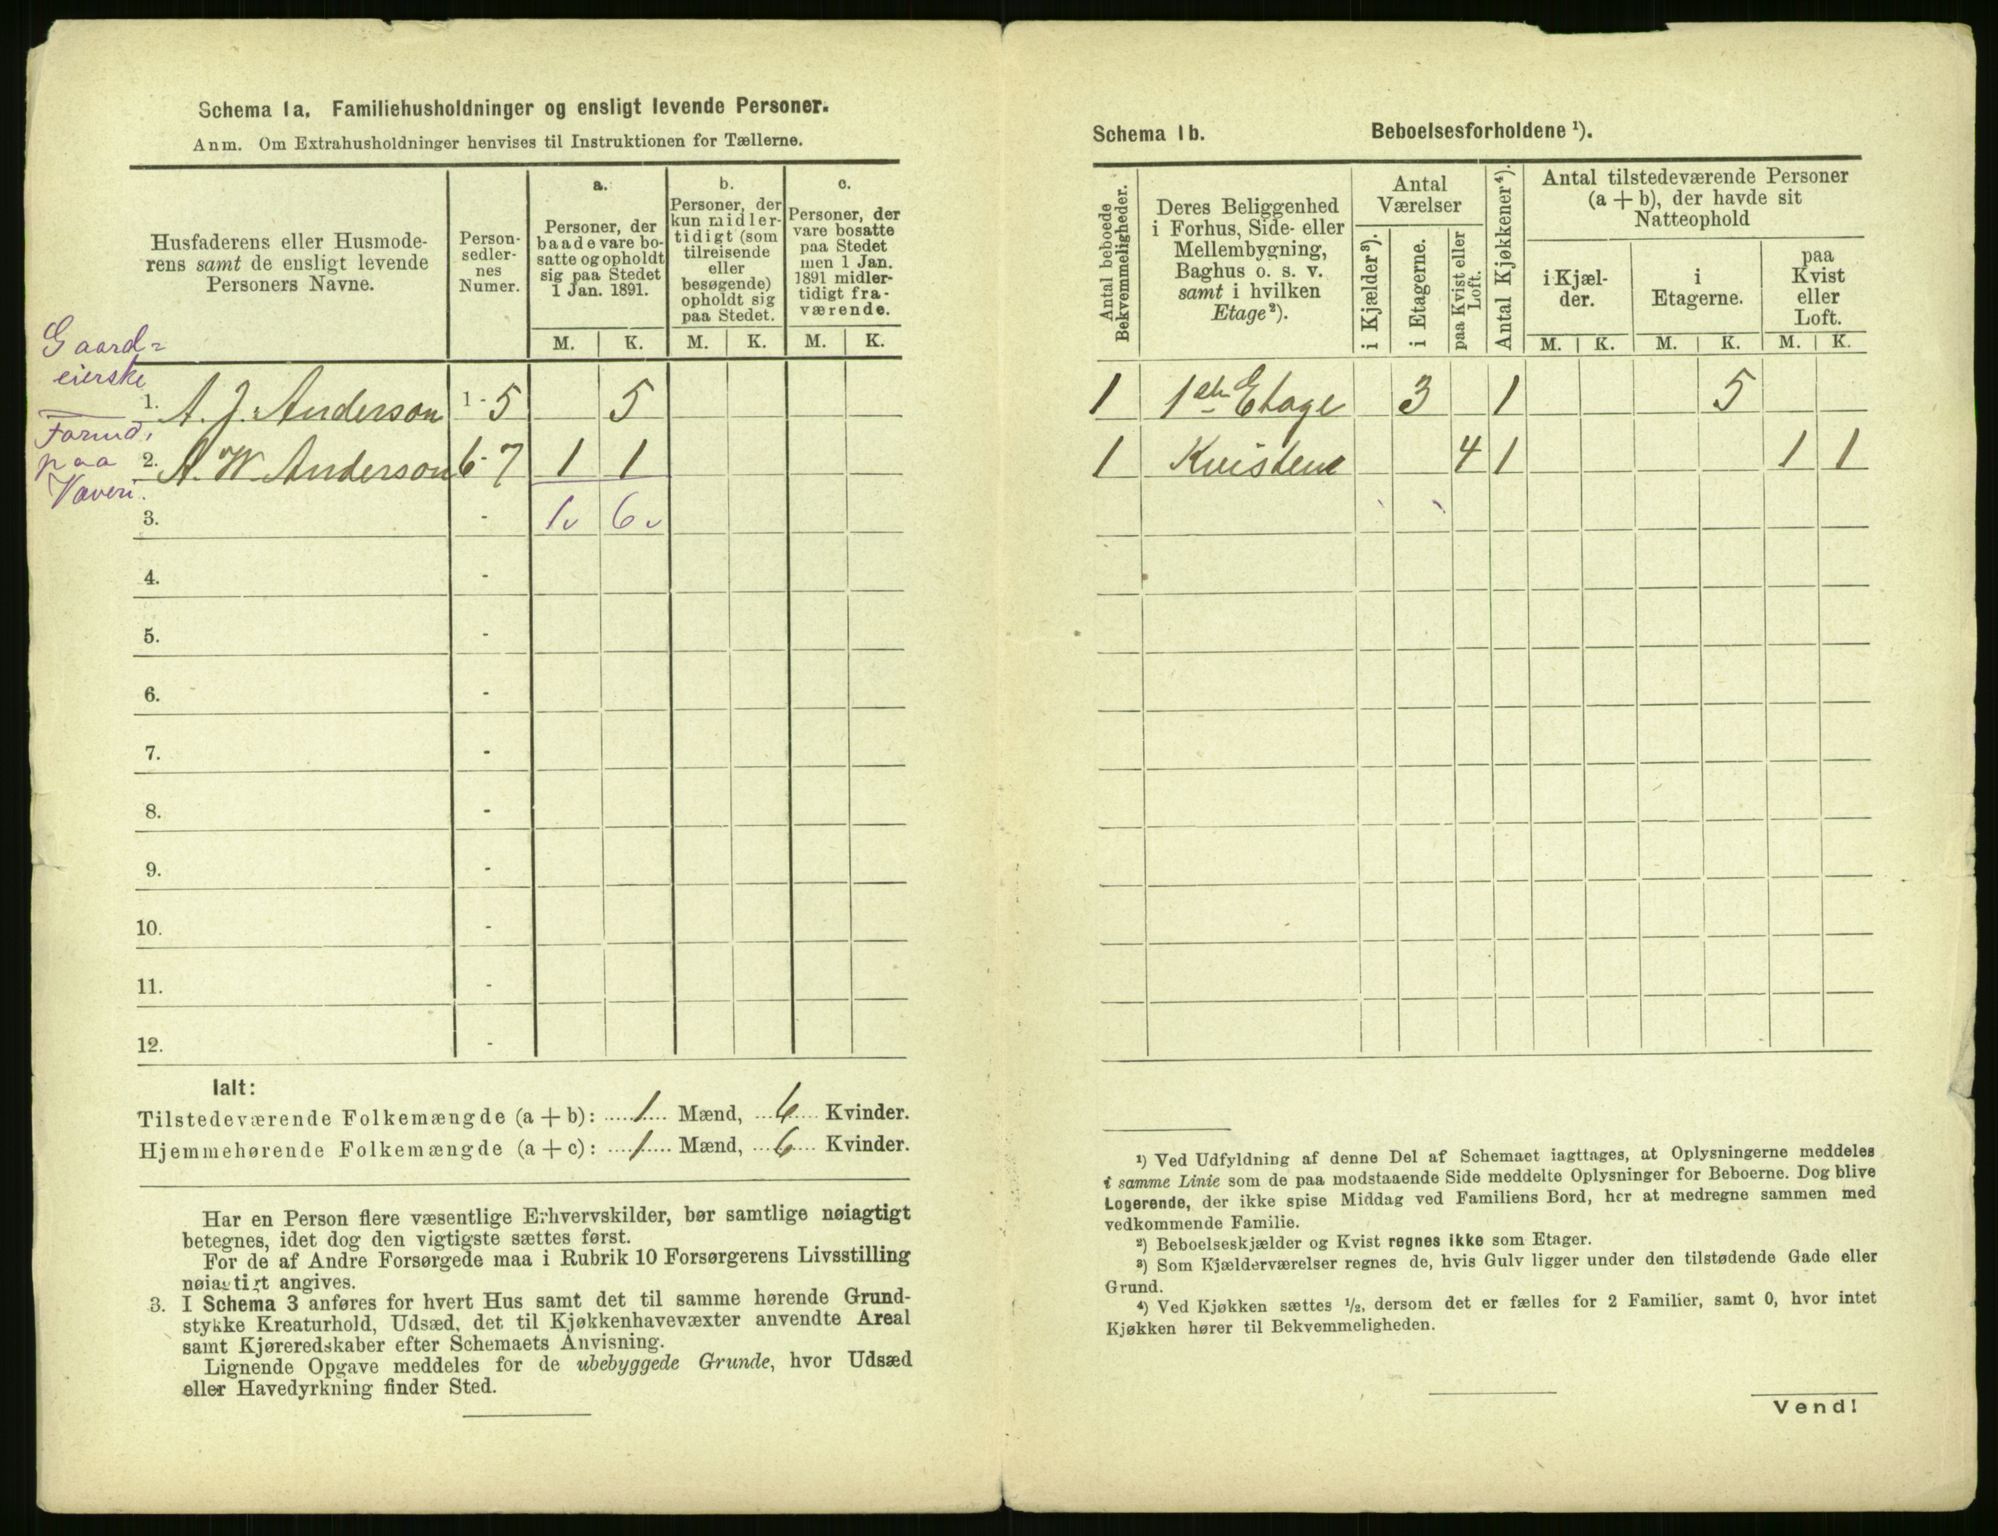 Schema 1a. Familiehusholdninger og ensligt levende Personer.
Anm. Om Extrahusholdninger henvises til Instruktionen for Tællerne.
Husfaderens eller Husmode-
rens samt de ensligt levende
Personers Navne.
Person-
sedler-
nes
Numer.
a.
Personer, der
baade vare bo-
satte og opholdt
sig paa Stedet
1 Jan. 1891.
b.
Personer, der
kun midler-
tidigt (som
tilreisende
eller
besøgende)
opholdt sig
paa Stedet.
c.
Personer, der
vare bosatte
paa Stedet
men 1 Jan.
1891 midler-
tidigt fra-
værende.
M. K. M. K. M. K.
Gaard=
eierske
1. A. J. Anderson 1 - 5 5
Formd.
paa
2. A. W. Anderson 6 - 7 1 1
Væveri.
3. - 1 6
4. -
5. -
6. -
7. -
8. -
9. -
10. -
11. -
12. -
Ialt:
Tilstedeværende Folkemængde (a + b): 1 Mænd, 6 Kvinder.
Hjemmehørende Folkemængde (a + c): 1 Mænd, 6 Kvinder.
Har en Person flere væsentlige Erhvervskilder, bør samtlige nøiagtigt
betegnes, idet dog den vigtigste sættes først.
For de af Andre Forsørgede maa i Rubrik 10 Forsørgerens Livsstilling
nøiagtigt angives.
3. I Schema 3 anføres for hvert Hus samt det til samme hørende Grund-
stykke Kreaturhold, Udsæd, det til Kjøkkenhavevæxter anvendte Areal
samt Kjøreredskaber efter Schemaets Anvisning.
Lignende Opgave meddeles for de ubebyggede Grunde, hvor Udsæd
eller Havedyrkning finder Sted.
Schema 1b. Beboelsesforholdene ¹).
Antal beboede
Bekvemmeligheder.
Deres Beliggenhed
i Forhus, Side- eller
Mellembygning,
Baghus o. s. v.
samt i hvilken
Etage²).
Antal
Værelser
i Kjælder³).
i Etagerne.
paa Kvist eller
Loft.
Antal Kjøkkener⁴).
Antal tilstedeværende Personer
(a + b), der havde sit
Natteophold
i Kjæl-
der.
i
Etagerne.
paa
Kvist
eller
Loft.
M. K. M. K. M. K.
1 1ste Etage 3 1 5
1 Kvistene 4 1 1 1
¹) Ved Udfyldning af denne Del af Schemaet iagttages, at Oplysningerne meddeles
i samme Linie som de paa modstaaende Side meddelte Oplysninger for Beboerne. Dog blive
Logerende, der ikke spise Middag ved Familiens Bord, her at medregne sammen med
vedkommende Familie.
²) Beboelseskjælder og Kvist regnes ikke som Etager.
³) Som Kjælderværelser regnes de, hvis Gulv ligger under den tilstødende Gade eller
Grund.
⁴) Ved Kjøkken sættes ¹/₂, dersom det er fælles for 2 Familier, samt 0, hvor intet
Kjøkken hører til Bekvemmeligheden.
Vend!